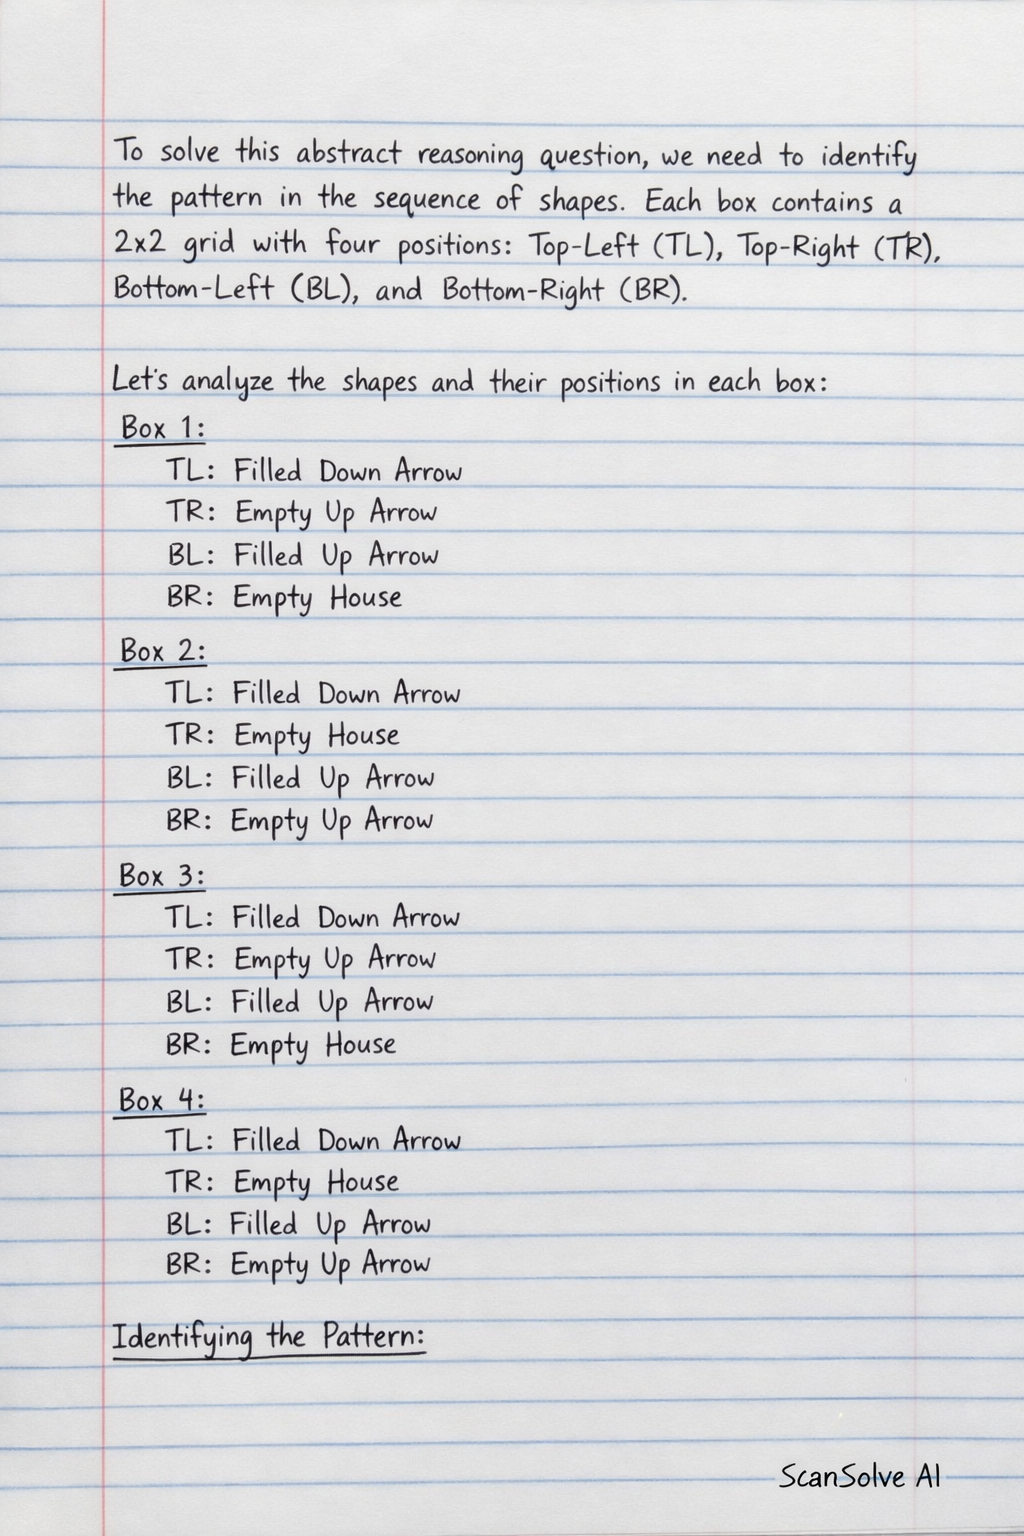 To solve this abstract reasoning question, we need to identify
the pattern in the sequence of shapes. Each box contains a
2x2 grid with four positions: Top-Left (TL), Top-Right (TR),
Bottom-Left (BL), and Bottom-Right (BR).
Let's analyze the shapes and their positions in each box:
Box 1:
TL: Filled Down Arrow
TR: Empty Up Arrow
BL: Filled Up Arrow
BR: Empty House
Box 2:
TL: Filled Down Arrow
TR: Empty House
BL: Filled Up Arrow
BR: Empty Up Arrow
Box 3:
TL: Filled Down Arrow
TR: Empty Up Arrow
BL: Filled Up Arrow
BR: Empty House
Box 4:
TL: Filled Down Arrow
TR: Empty House
BL: Filled Up Arrow
BR: Empty Up Arrow
Identifying the Pattern:
ScanSolve AI